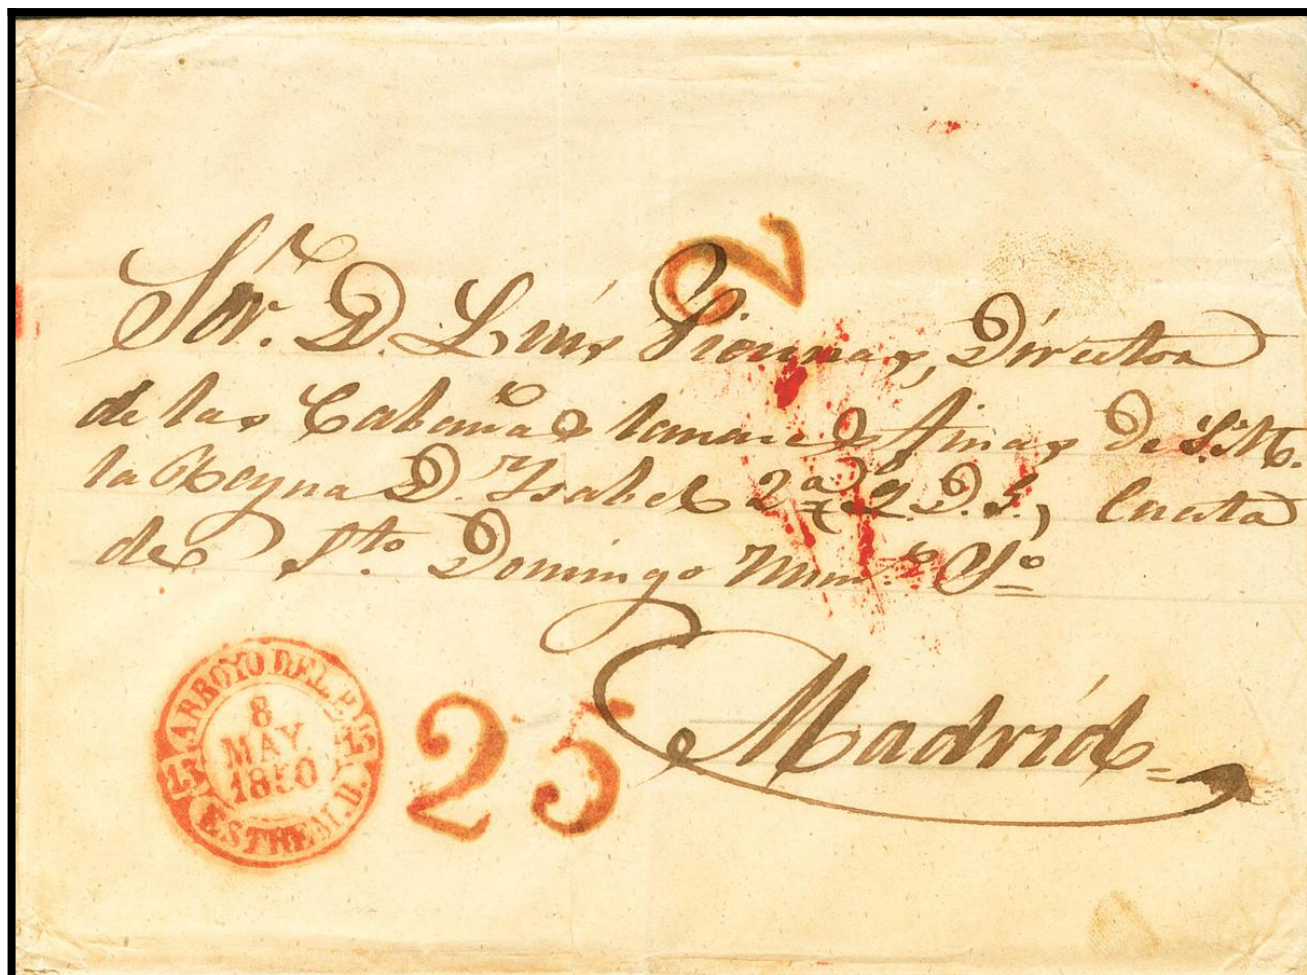 2
Sor. D. Luis Pionnas, Director
de las Cabañas lanares finas de S.M.
la Reyna D. Ysabel 2ª (Q.D.G.) Cuesta
de Sto. Domingo Num.º
Madrid
ARROYO DEL P.
8
MAY
1850
ESTREM. B.
25